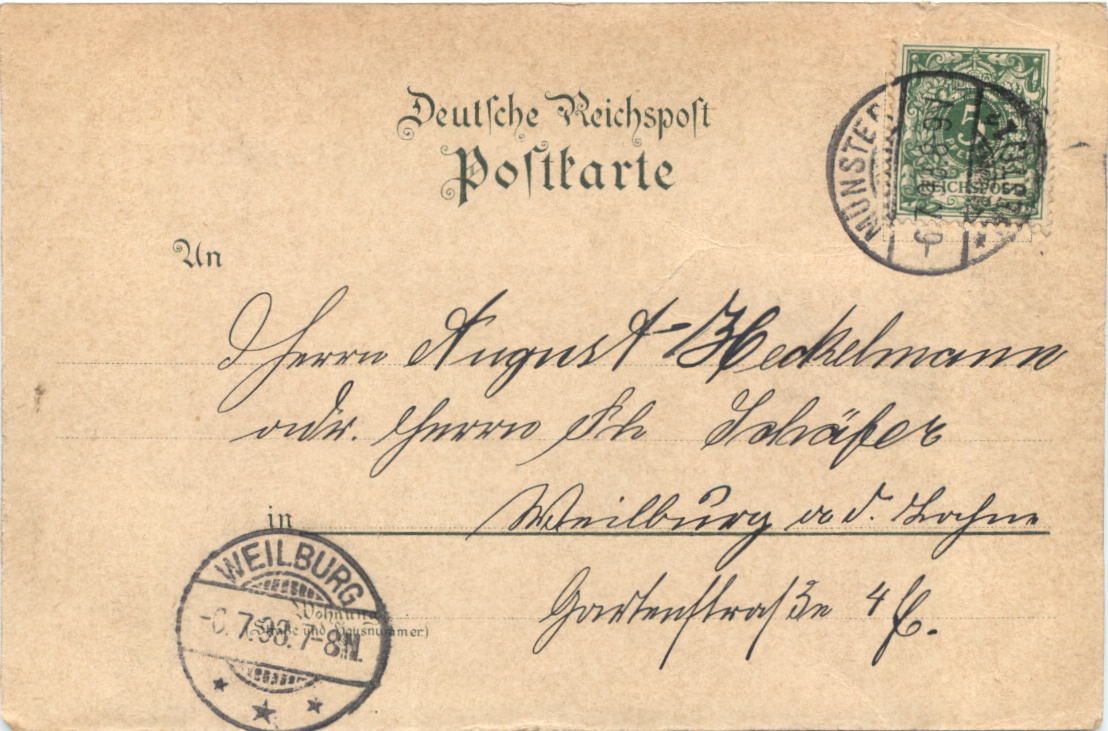 Deutsche Reichspost
Postkarte
5
REICHSPOST
MÜNSTER
An
Herrn August Heckelmann
adr. Herrn Ph Schäfer
in
Weilburg a d. Lahn
Gartenstraße 4
Wohnung
(Straße und Hausnummer)
WEILBURG
-6.7.98.7-8N.